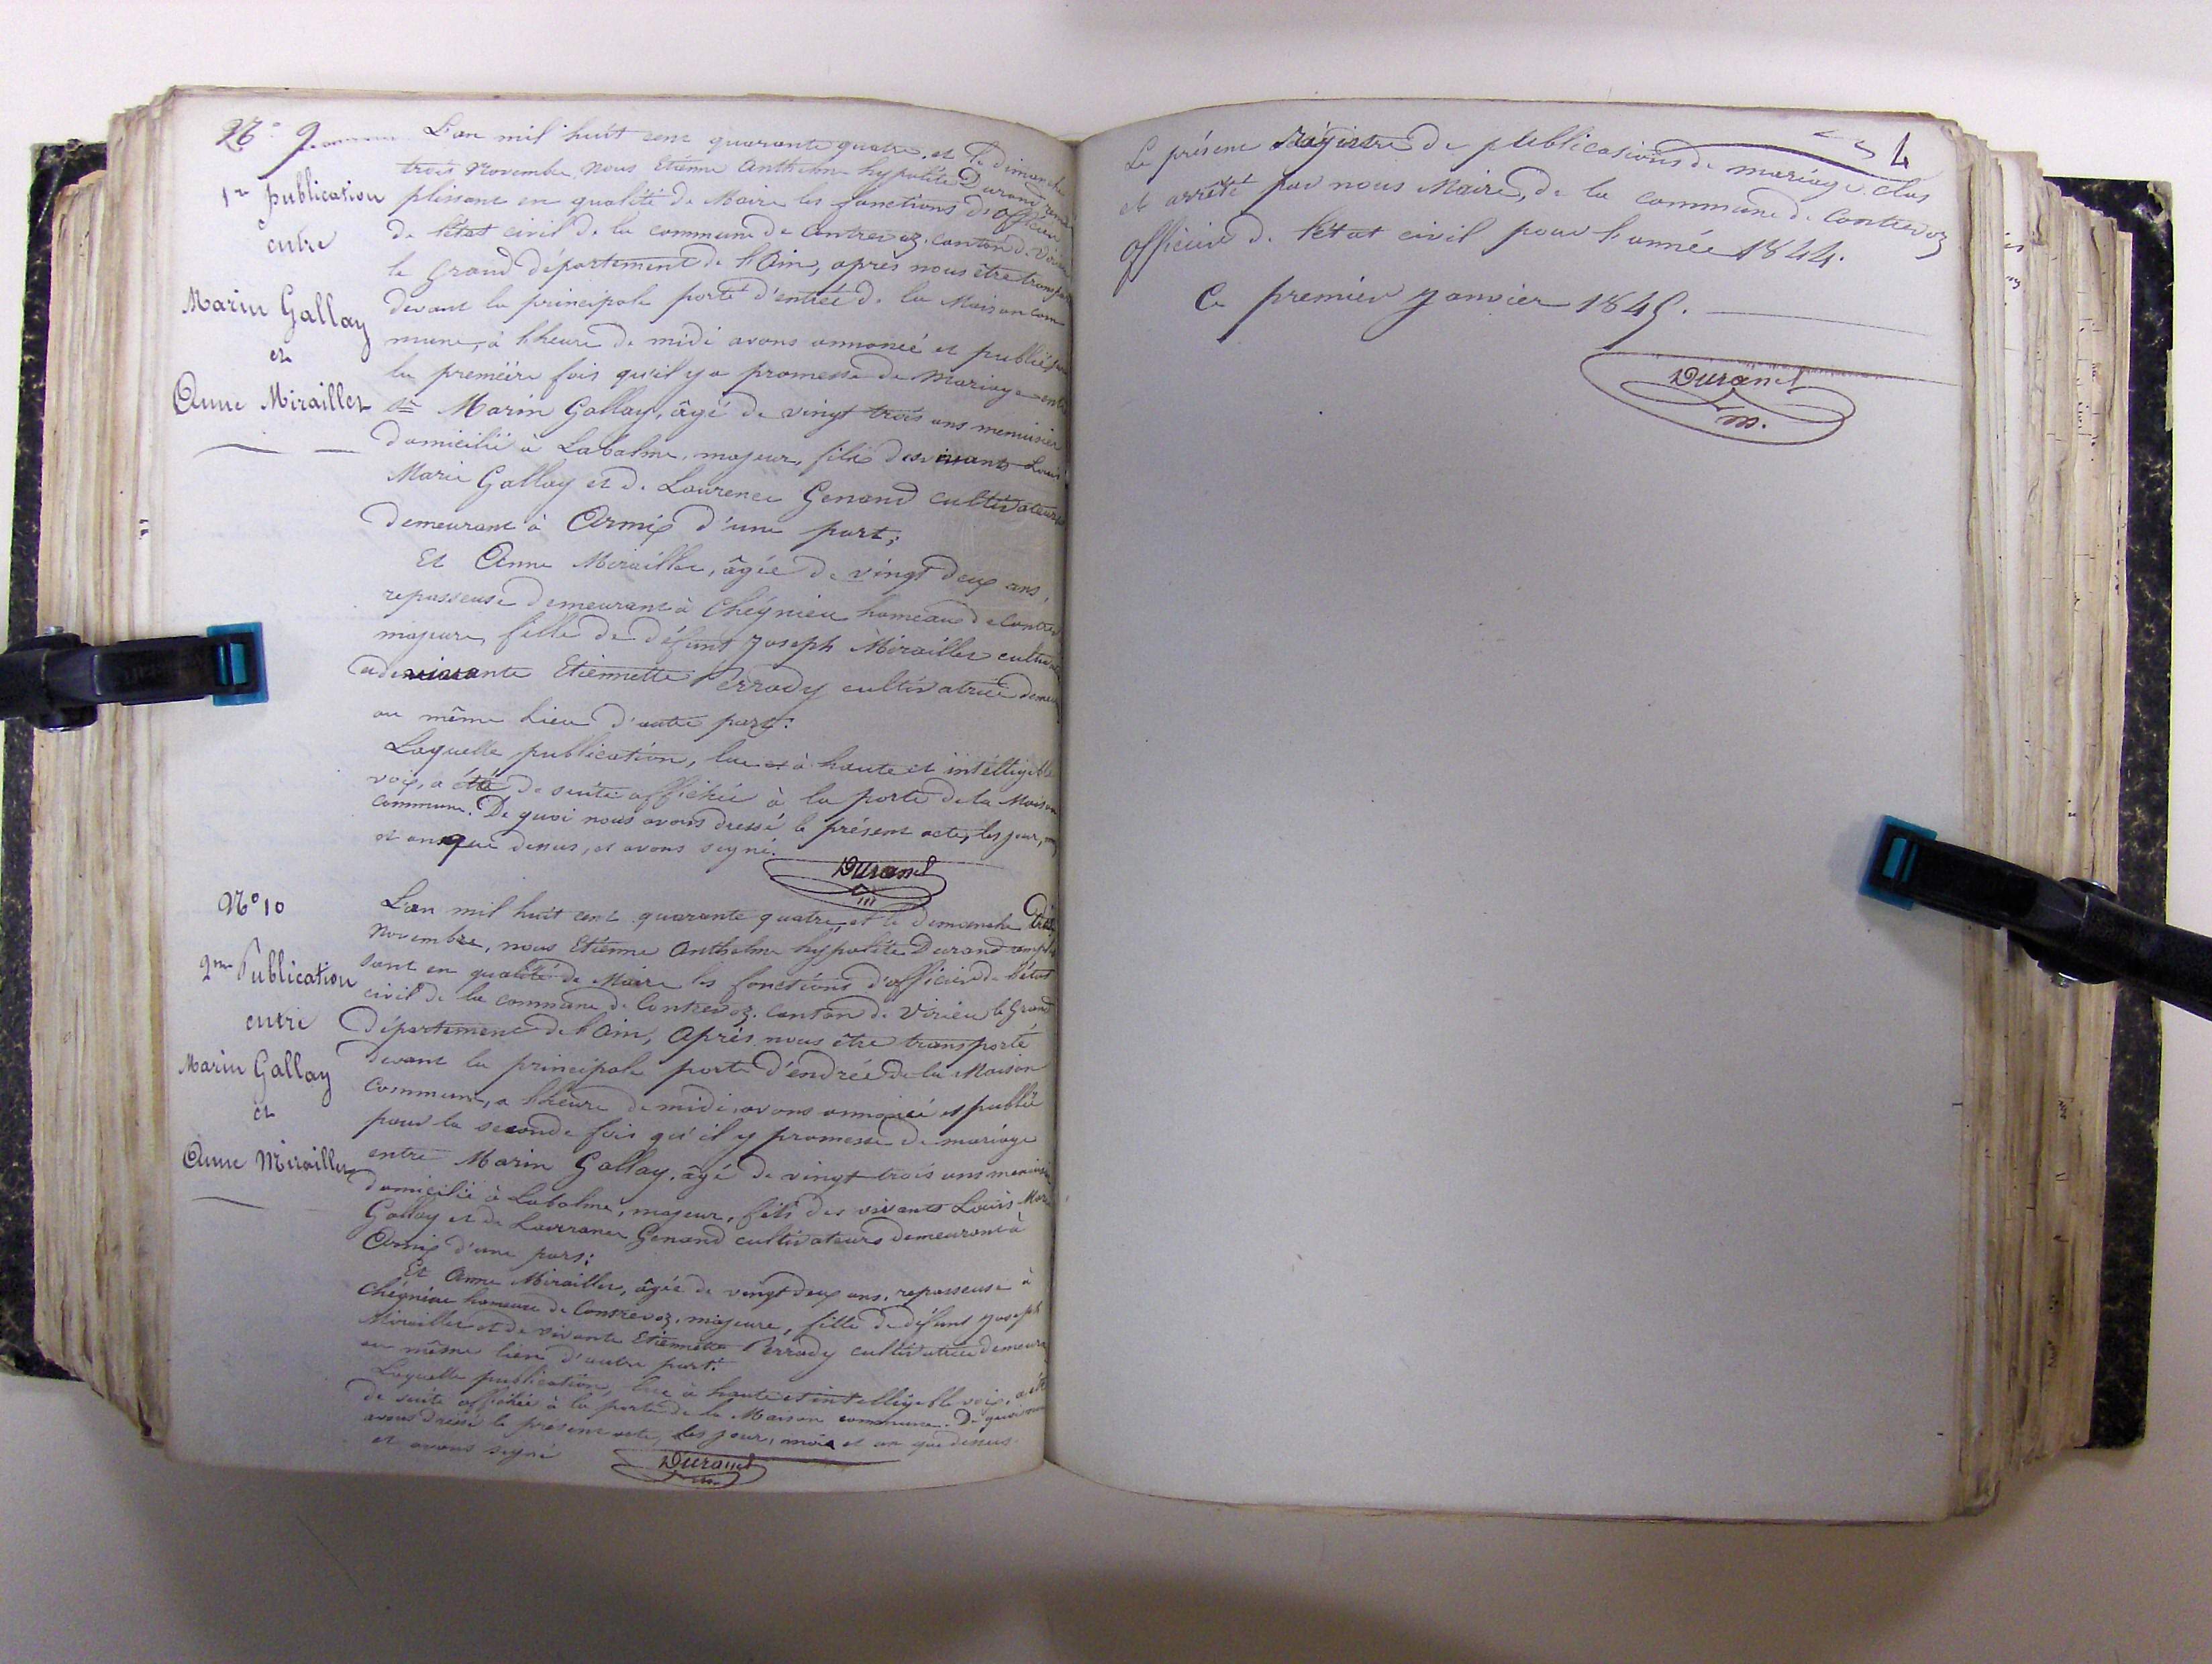 N° 9
1re publication
entre
Marin Gallay
et
Anne Miraillet
L'an mil huit cent quarante quatre, et le dimanche
trois Novembre, nous Etienne Anthelme hypolite Durand rem
plissant en qualité de Maire les fonctions d'officier
de l'état civil de la commune de Contrevoz, canton de Virieu
le Grand département de l'Ain, après nous être transporté
devant la principale porte d'entrée de la Maison com
mune, à l'heure de midi avons annoncé et publié pour
la première fois qu'il y a promesse de Mariage entre
Sr Marin Gallay, âgé de vingt trois ans menuisier
domicilié à Labalme, majeur, fils des vivants Louis
Marie Gallay et de Laurence Genand cultivateurs
demeurant à Armix d'une part;
Et Anne Miraillet, âgée de vingt deux ans,
repasseuse demeurant à Chégnieu hameau de Contrev
majeure, fille de défunt Joseph Miraillet cultivat
et de vivante Etiennette Perrody cultivatrice demeur
au même lieu d'autre part:
Laquelle publication, lue à haute et intélligible
voix, a été de suite affichée à la porte de la Maison
commune. De quoi nous avons dressé le présent acte, les jour, mois
et an que dessus, et avons signé.
Durand
m
N° 10
2me Publication
entre
Marin Gallay
et
Anne Miraillet
L'an mil huit cent quarante quatre, et le dimanche dix
Novembre, nous Etienne Anthelme hypolite Durand remplis
sant en qualité de Maire les fonctions d'officier de l'état
civil de la commune de Contrevoz, canton de Virieu le Grand
département de l'Ain, Après nous être transporté
devant la principale porte d'endrée de la Maison
Commune, a l'heure de midi avons annoncé et publié
pour la seconde fois qu'il y promesse de mariage
entre Marin Gallay, âgé de vingt trois ans menuisier
domicilié à Labalme, majeur, fils des vivants Louis Marie
Gallay et de Laurance Genand cultivateurs demeurant à
Armix d'une part:
Et Anne Miraillet, âgée de vingt deux ans, repasseuse à
Chégnieu hameau de Contrevoz, majeure, fille de défunt Joseph
Miraillet et de vivante Etiennette Perrody cultivatrice demeurant
au même lieu d'autre part:
Laquelle publication, lue à haute et intelligible voix, a été
de suite affichée à la porte de la Maison commune. De quoi nous
avons dressé le présent acte, les jour, mois et an que dessus.
et avons signé
Durand
m
4
Le présent Régistre de publications de mariage clos
et arrêté par nous Maire, de la commune de Contrevoz
officier de l'état civil pour l'année 1844.
Ce premier Janvier 1845.
Durand
m.